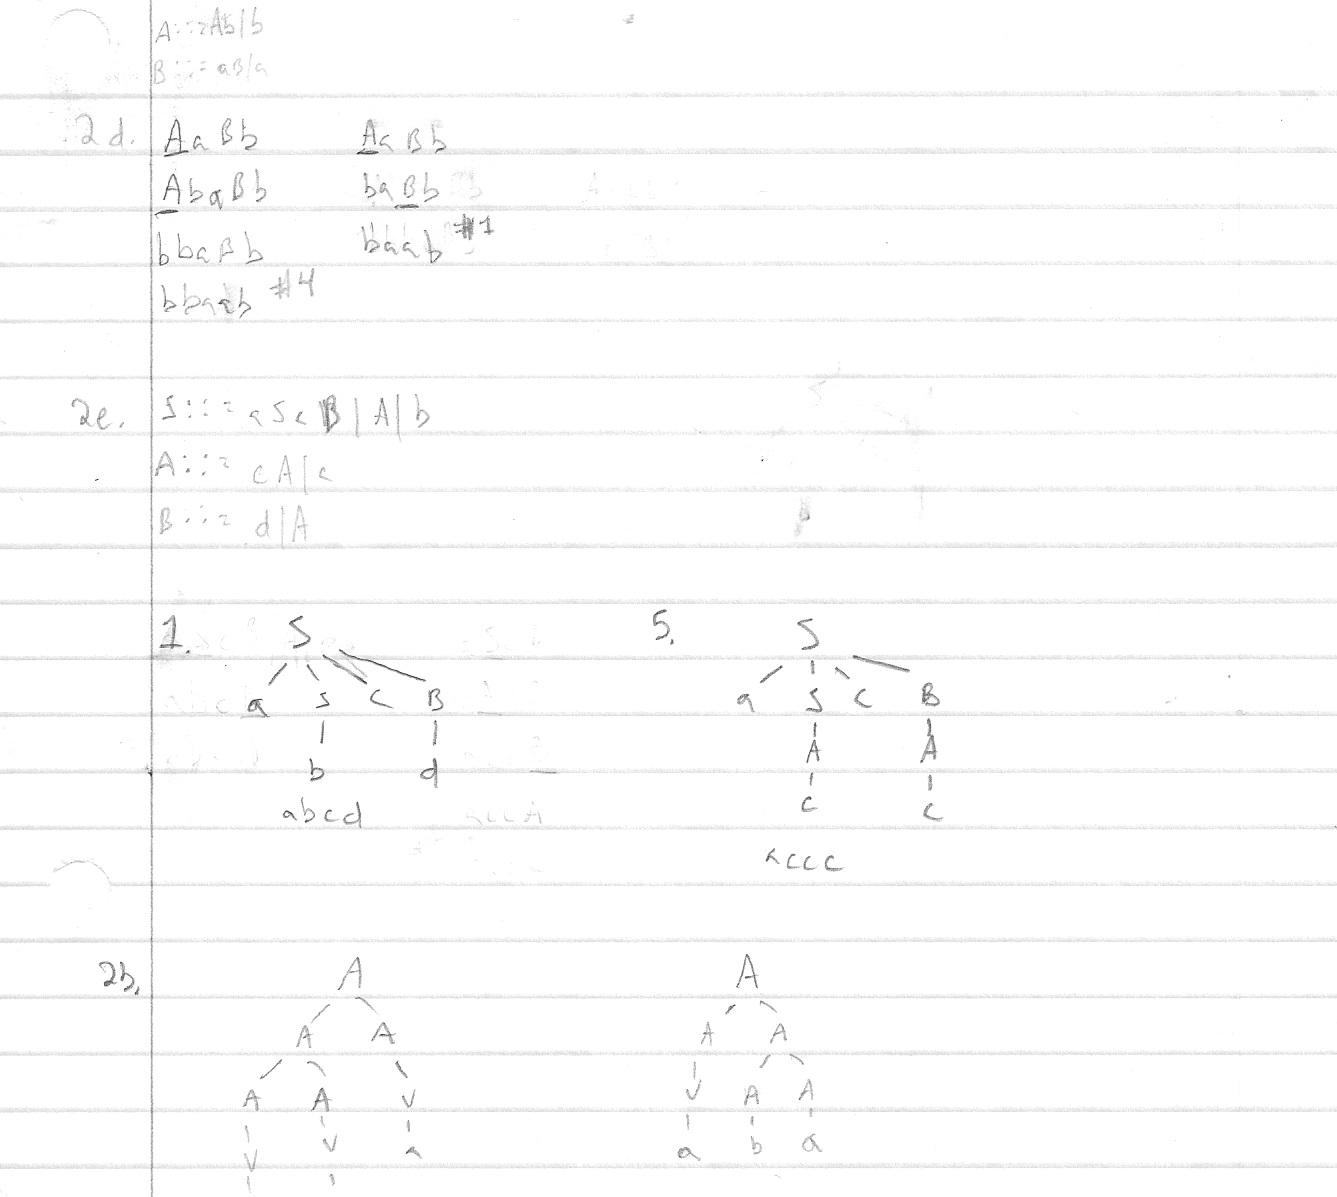 A::=Ab|b
B::=aB|a
2d. AaBb AaBb
AbaBb baBb
bbaBb baab #1
bbaab #4
2e. S::= aScB|A|b
A::= cA|c
B::= d|A
1. S 5. S
a S c B a S c B
b d A A
abcd c c
accc
2b. A A
A A A A
A A V V A A
V V a a b a